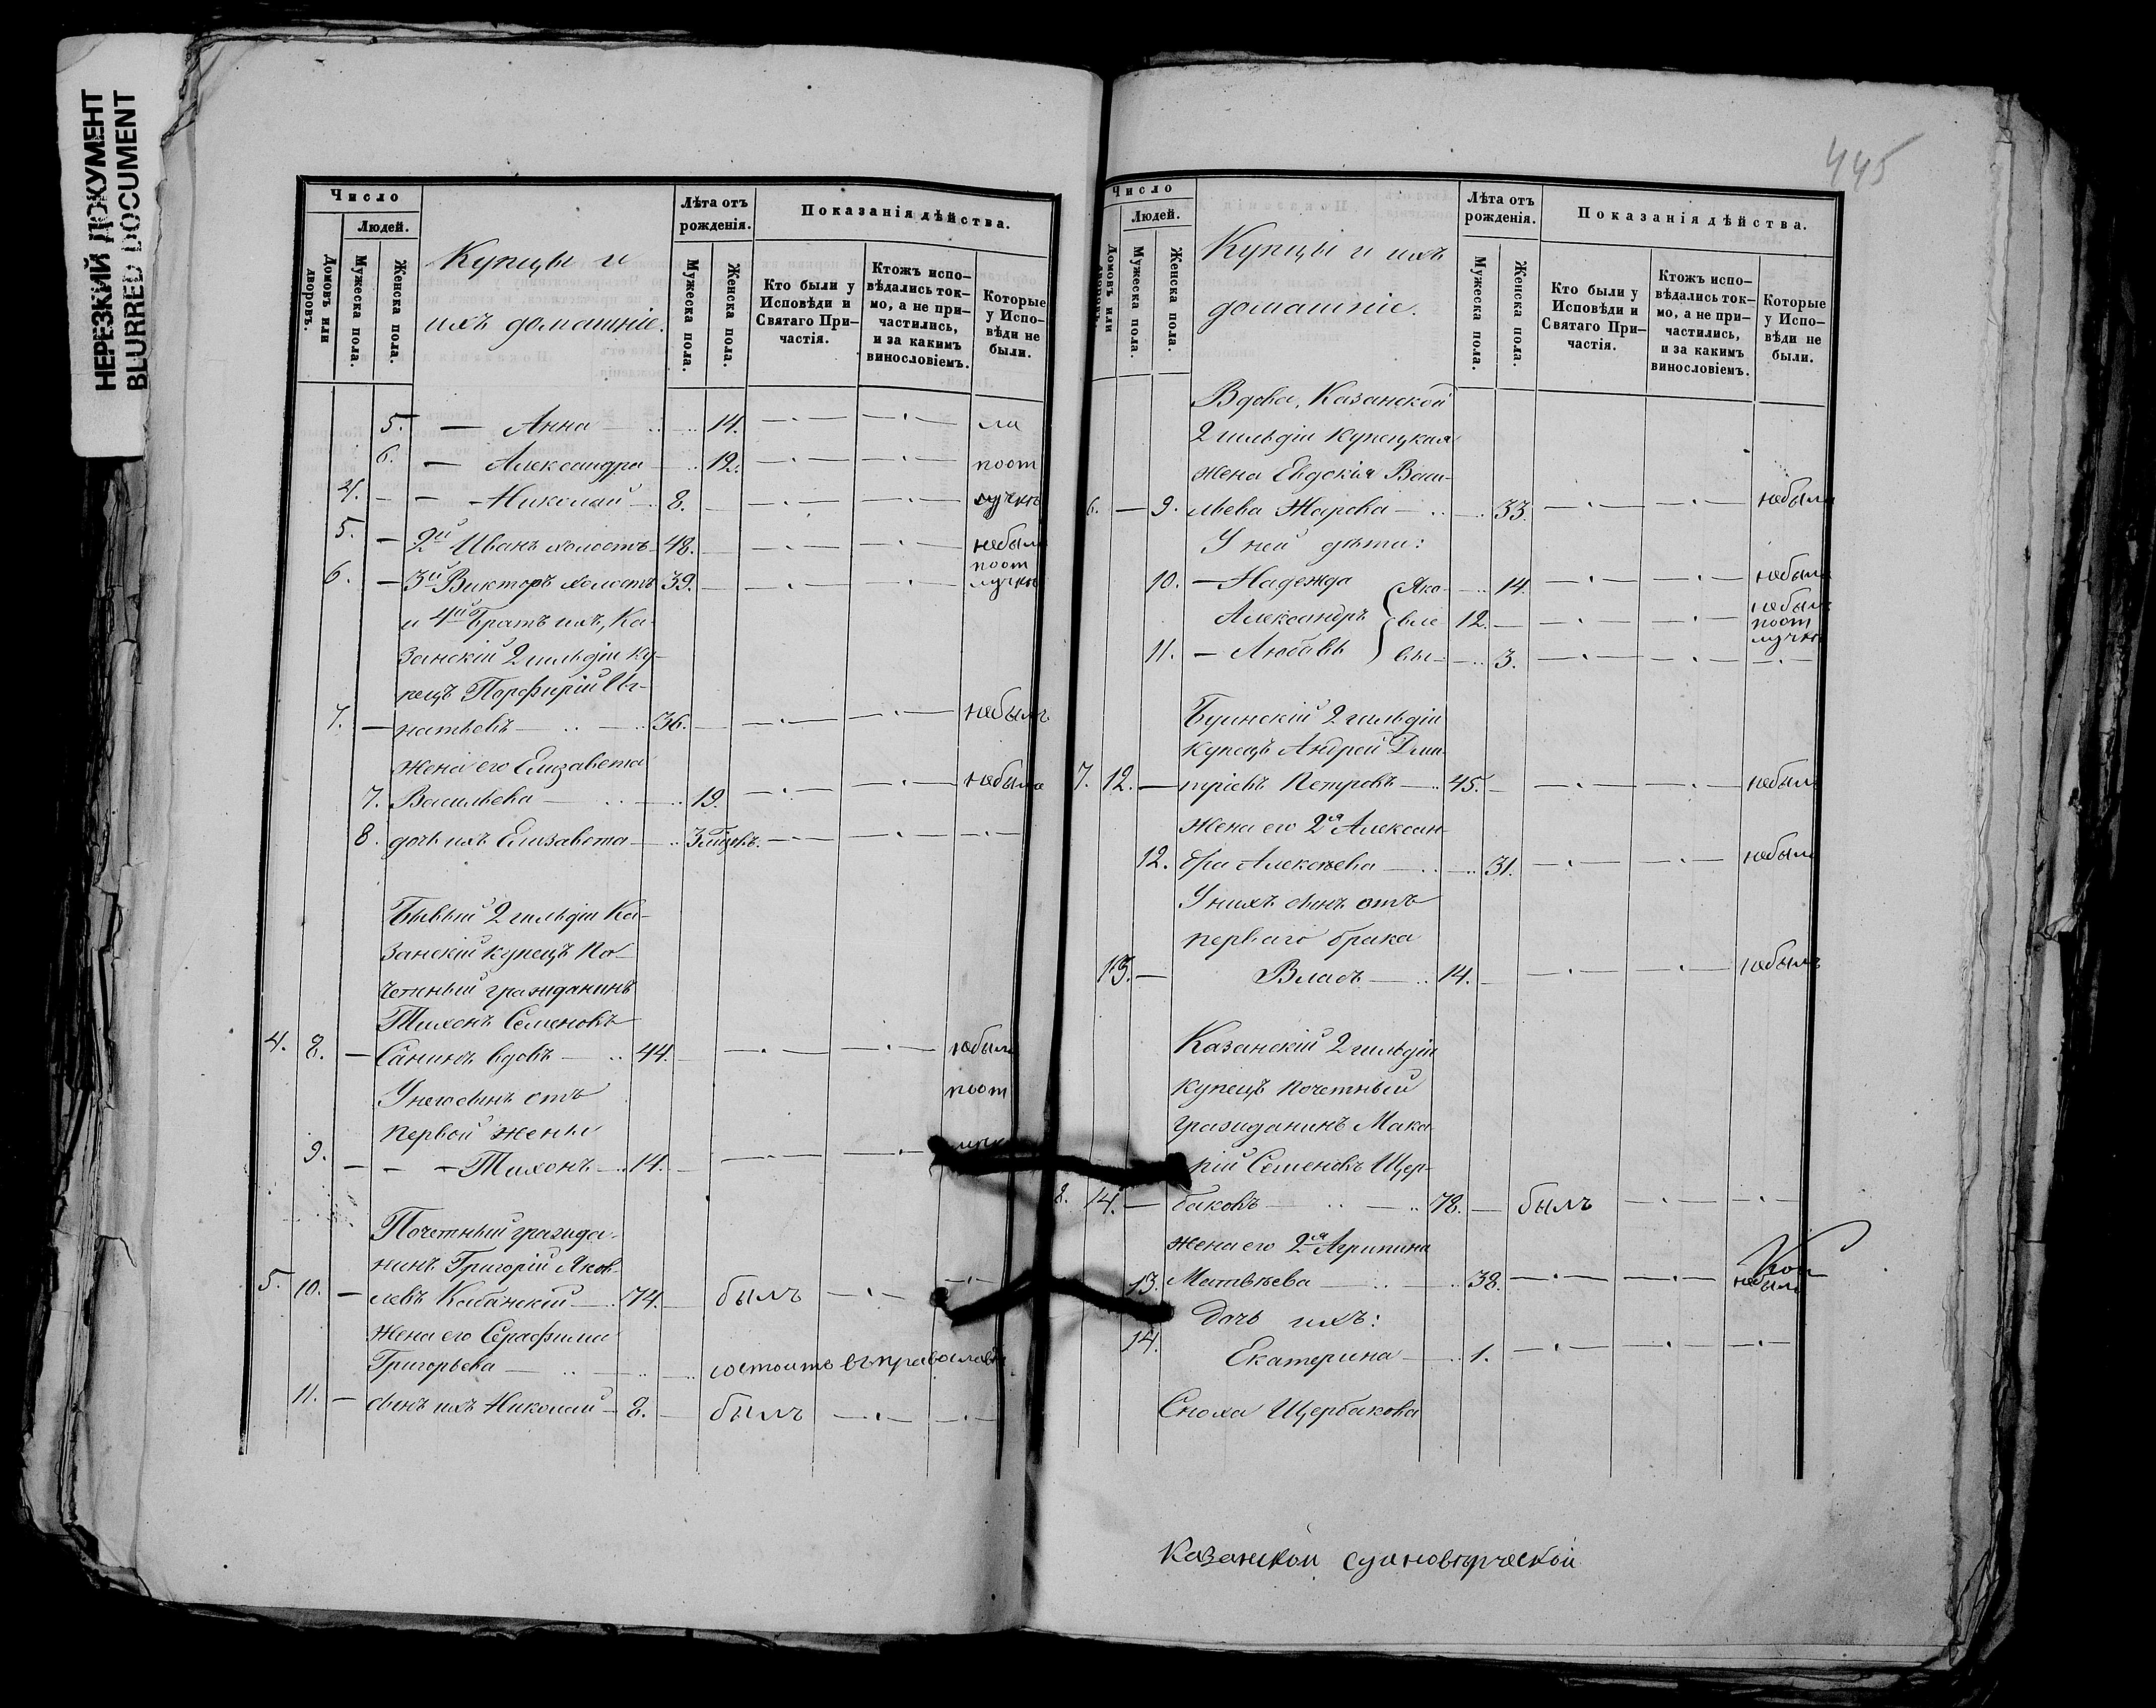 НЕРЕЗКИЙ ДОКУМЕНТ
BLURRED DOCUMENT
Число
Людей.
Домовъ или дворовъ.
Мужеска пола.
Женска пола.
Купцы и
ихъ домашніе.
Лѣта отъ рожденія.
Мужеска пола.
Женска пола.
Показанія дѣйства.
Кто были у Исповѣди и Святаго Причастія.
Ктожъ исповѣдались токмо, а не причастились, и за какимъ винословіемъ.
Которые у Исповѣди не были.
5. — Анна — 14. — — ла
6. — Александра — 12. — — поот
4. — — Николай — 8. — — — лучкѣ
5. — 2й Иванъ холостъ — 48. — — — небылъ
6. — 3й Викторъ холостъ 39. — — — поот лучкѣ
и 4й Братъ ихъ, Ка-
занскій 2 гильдіи ку-
пецъ Порфирій Иг-
7. — натьевъ — 36. — — — небылъ
жена его Елизавета
7. Васильева — 19. — — небыла
8. дочь ихъ Елизавета — 3 мѣсяцъ. — — —
Бывый 2 гильдіи Ка-
занскій купецъ По-
четный гражданинъ
Тихонъ Семеновъ
4. 8. — Санинъ вдовъ — 44. — — — небылъ
У него сынъ отъ поот
первой жены
9. — — — Тихонъ — 14. — — —
Почетный гражда-
нинъ Григорій Яков-
5. 10. — левъ Кабанскій — 74. — былъ — —
жена его Серафима
Григорьева — состоитъ въ православіи
11. — сынъ ихъ Николай — 8. — былъ — —
445
Число
Людей.
Домовъ или дворовъ.
Мужеска пола.
Женска пола.
Купцы и ихъ
домашніе.
Лѣта отъ рожденія.
Мужеска пола.
Женска пола.
Показанія дѣйства.
Кто были у Исповѣди и Святаго Причастія.
Ктожъ исповѣдались токмо, а не причастились, и за какимъ винословіемъ.
Которые у Исповѣди не были.
Вдова, Казанской
2 гильдіи купецкая
жена Евдокія Васи-
6. — 9. льева Жарова — 33. — — небыла
У ней дѣти:
10. — Надежда Яко- — 14. — — небыла
Александръ вле 12. — — — небылъ поот лучкѣ
11. — Любовь вы — 3. — — —
Буинскій 2 гильдіи
купецъ Андрей Дми-
7. 12. — тріевъ Петровъ — 45. — — — небылъ
жена его 2я Алексан-
12. дра Алексѣева — 31. — — небыла
У нихъ сынъ отъ
перваго брака
13. — Власъ — 14. — — — небылъ
Казанскій 2 гильдіи
купецъ почетный
гражданинъ Мака-
рій Семеновъ Щер-
8. 14. — баковъ — 78. — былъ — —
жена его 2я Агрипина
13. Матвѣева — 38. — — небыла
Дочь ихъ:
14. Екатерина — 1. — — —
Сноха Щербакова
Казанской единовѣрческой